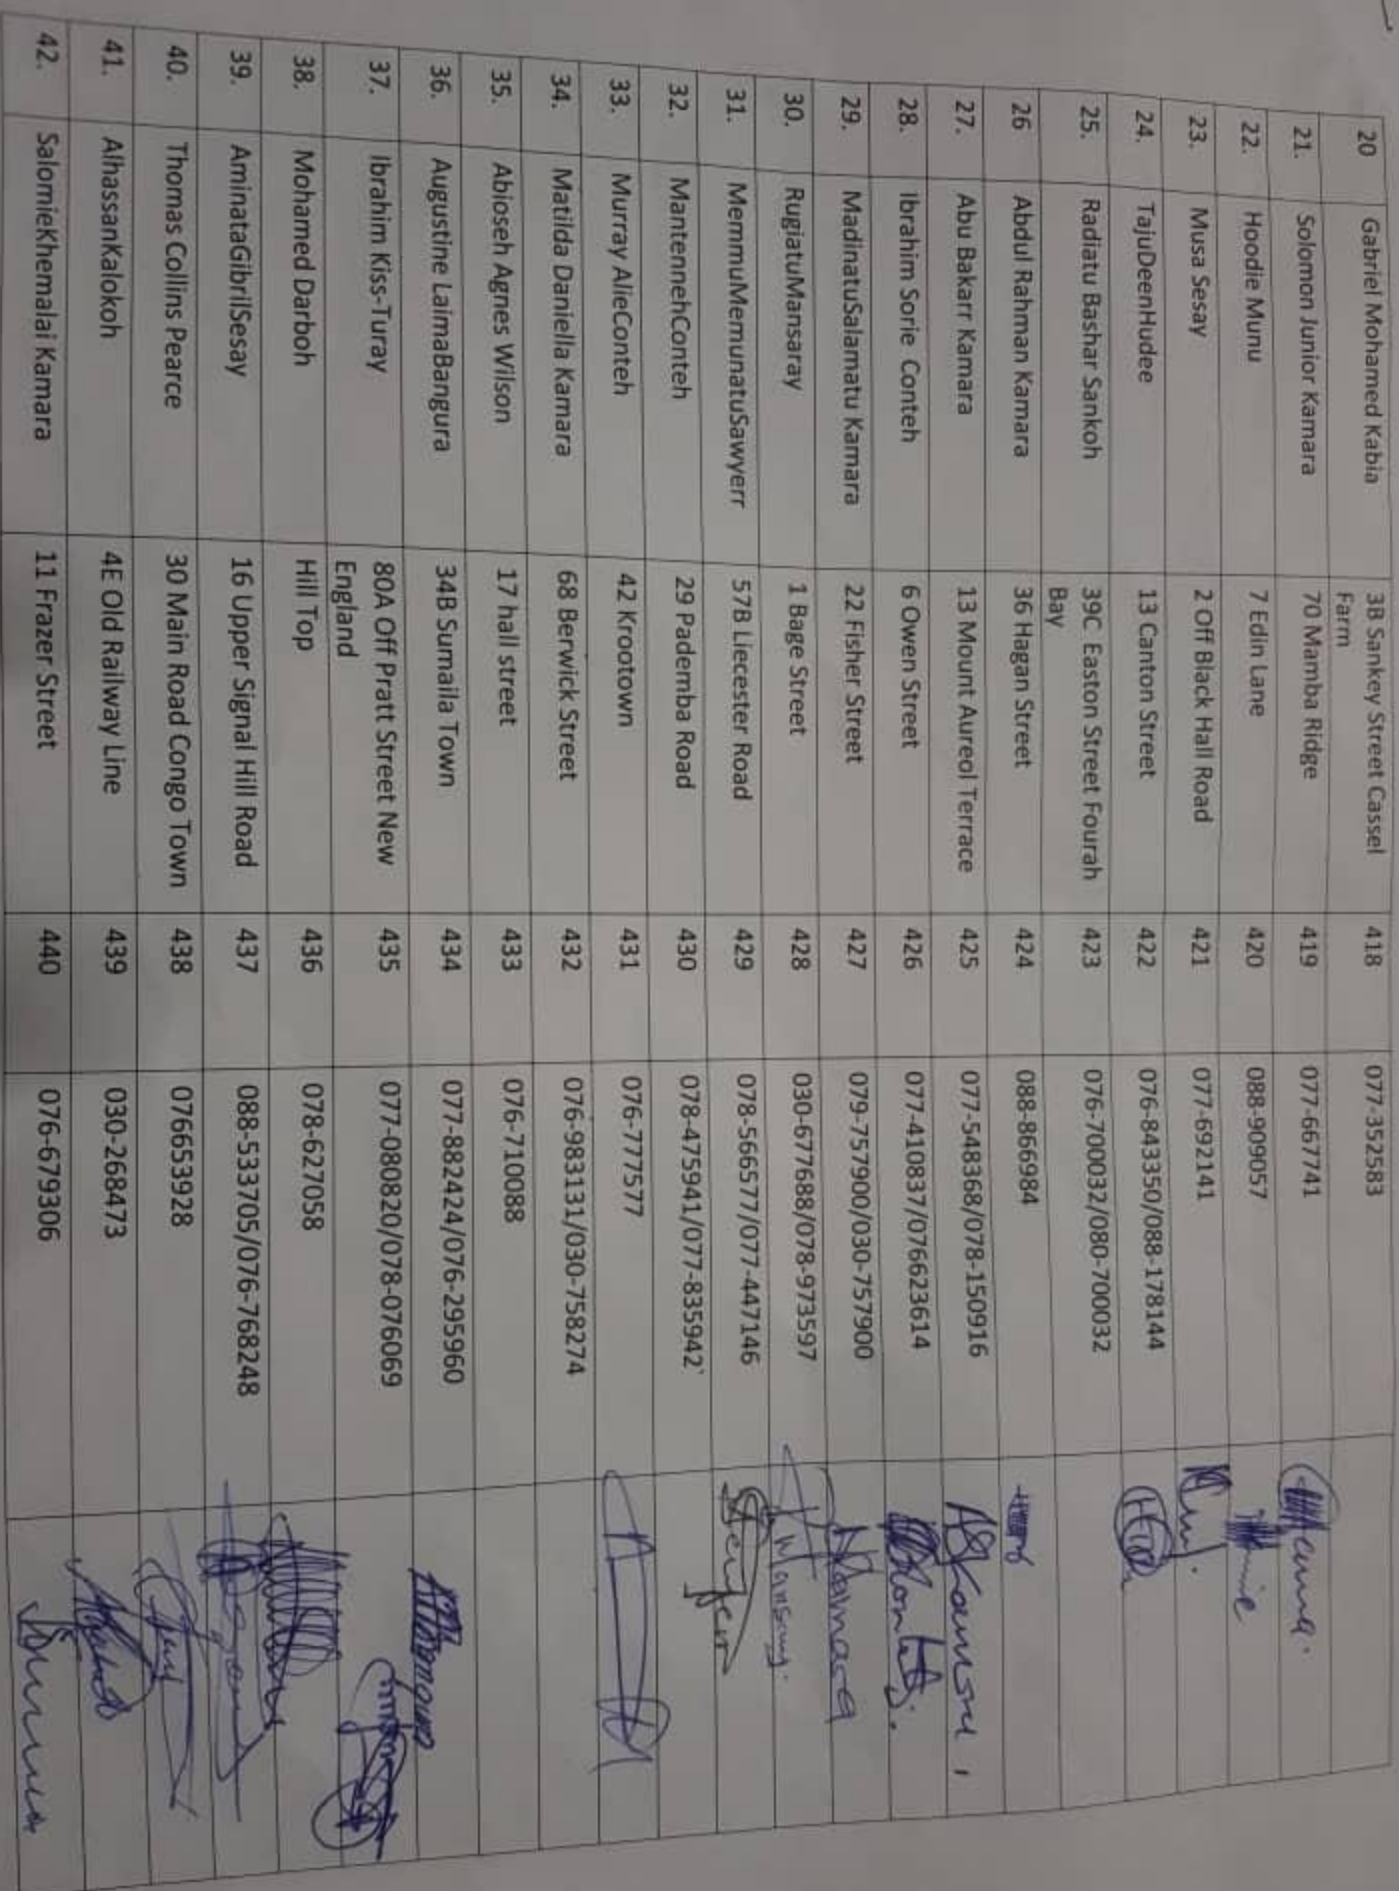 20 Gabriel Mohamed Kabia 3B Sankey Street Cassel Farm 418 077-352583
21. Solomon Junior Kamara 70 Mamba Ridge 419 077-667741
22. Hoodie Munu 7 Edin Lane 420 088-909057
23. Musa Sesay 2 Off Black Hall Road 421 077-692141
24. TajuDeenHudee 13 Canton Street 422 076-843350/088-178144
25. Radiatu Bashar Sankoh 39C Easton Street Fourah Bay 423 076-700032/080-700032
26 Abdul Rahman Kamara 36 Hagan Street 424 088-866984
27. Abu Bakarr Kamara 13 Mount Aureol Terrace 425 077-548368/078-150916
28. Ibrahim Sorie Conteh 6 Owen Street 426 077-410837/076623614
29. MadinatuSalamatu Kamara 22 Fisher Street 427 079-757900/030-757900
30. RugiatuMansaray 1 Bage Street 428 030-677688/078-973597
31. MemmuMemunatuSawyerr 57B Liecester Road 429 078-566577/077-447146
32. MantennehConteh 29 Pademba Road 430 078-475941/077-835942
33. Murray AlieConteh 42 Krootown 431 076-777577
34. Matilda Daniella Kamara 68 Berwick Street 432 076-983131/030-758274
35. Abioseh Agnes Wilson 17 hall street 433 076-710088
36. Augustine LaimaBangura 34B Sumaila Town 434 077-882424/076-295960
37. Ibrahim Kiss-Turay 80A Off Pratt Street New England 435 077-080820/078-076069
38. Mohamed Darboh Hill Top 436 078-627058
39. AminataGibrilSesay 16 Upper Signal Hill Road 437 088-533705/076-768248
40. Thomas Collins Pearce 30 Main Road Congo Town 438 076653928
41. AlhassanKalokoh 4E Old Railway Line 439 030-268473
42. SalomieKhemalai Kamara 11 Frazer Street 440 076-679306